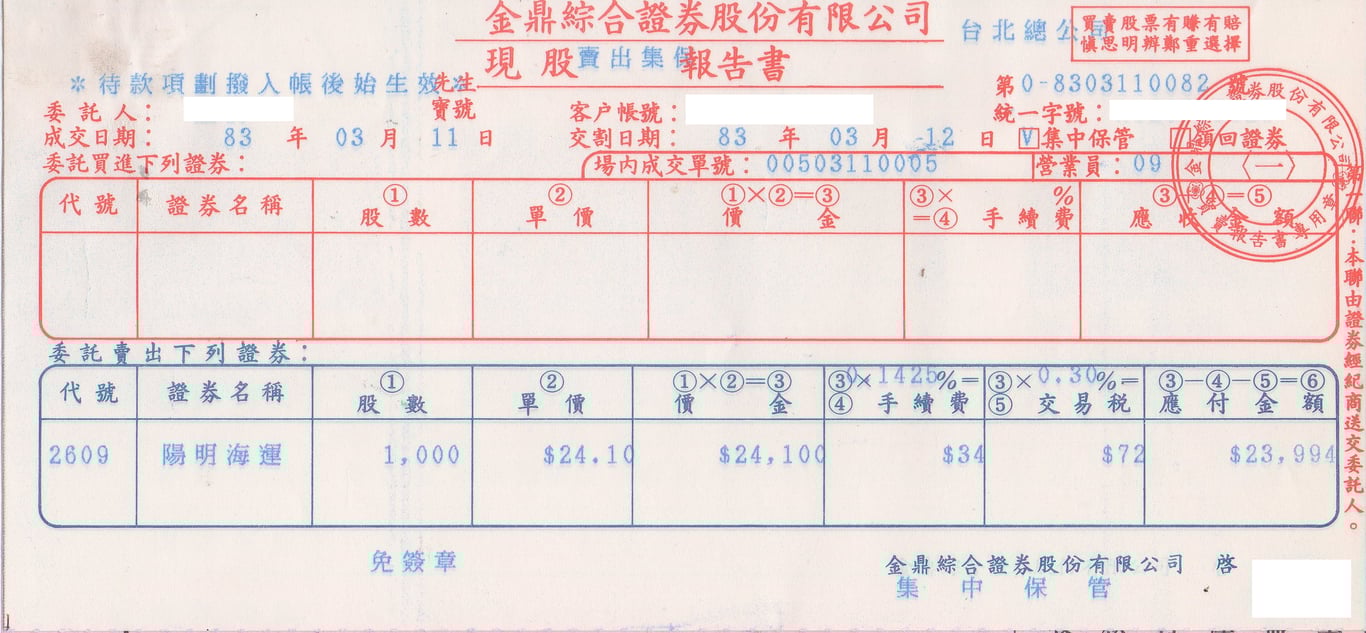 金鼎綜合證券股份有限公司
台北總公司
買賣股票有賺有賠
慎思明辨鄭重選擇
現股賣出集保報告書
＊待款項劃撥入帳後始生效＊
先生
寶號
第0-8303110082號
委託人：
客戶帳號：
統一字號：
成交日期： 83 年 03 月 11 日
交割日期： 83 年 03 月 12 日 V集中保管 □領回證券
委託買進下列證券：
場內成交單號：00503110005 營業員：09
代號 證券名稱 ①股數 ②單價 ①×②=③價金 ③× %=④手續費 ③+④=⑤應收金額
委託賣出下列證券：
代號 證券名稱 ①股數 ②單價 ①×②=③價金 ③×0.1425%=④手續費 ③×0.30%=⑤交易稅 ③-④-⑤=⑥應付金額
2609 陽明海運 1,000 $24.10 $24,100 $34 $72 $23,994
免簽章
金鼎綜合證券股份有限公司 啓
集中保管
第一聯：本聯由證券經紀商送交委託人。
報告書專用章
〈一〉